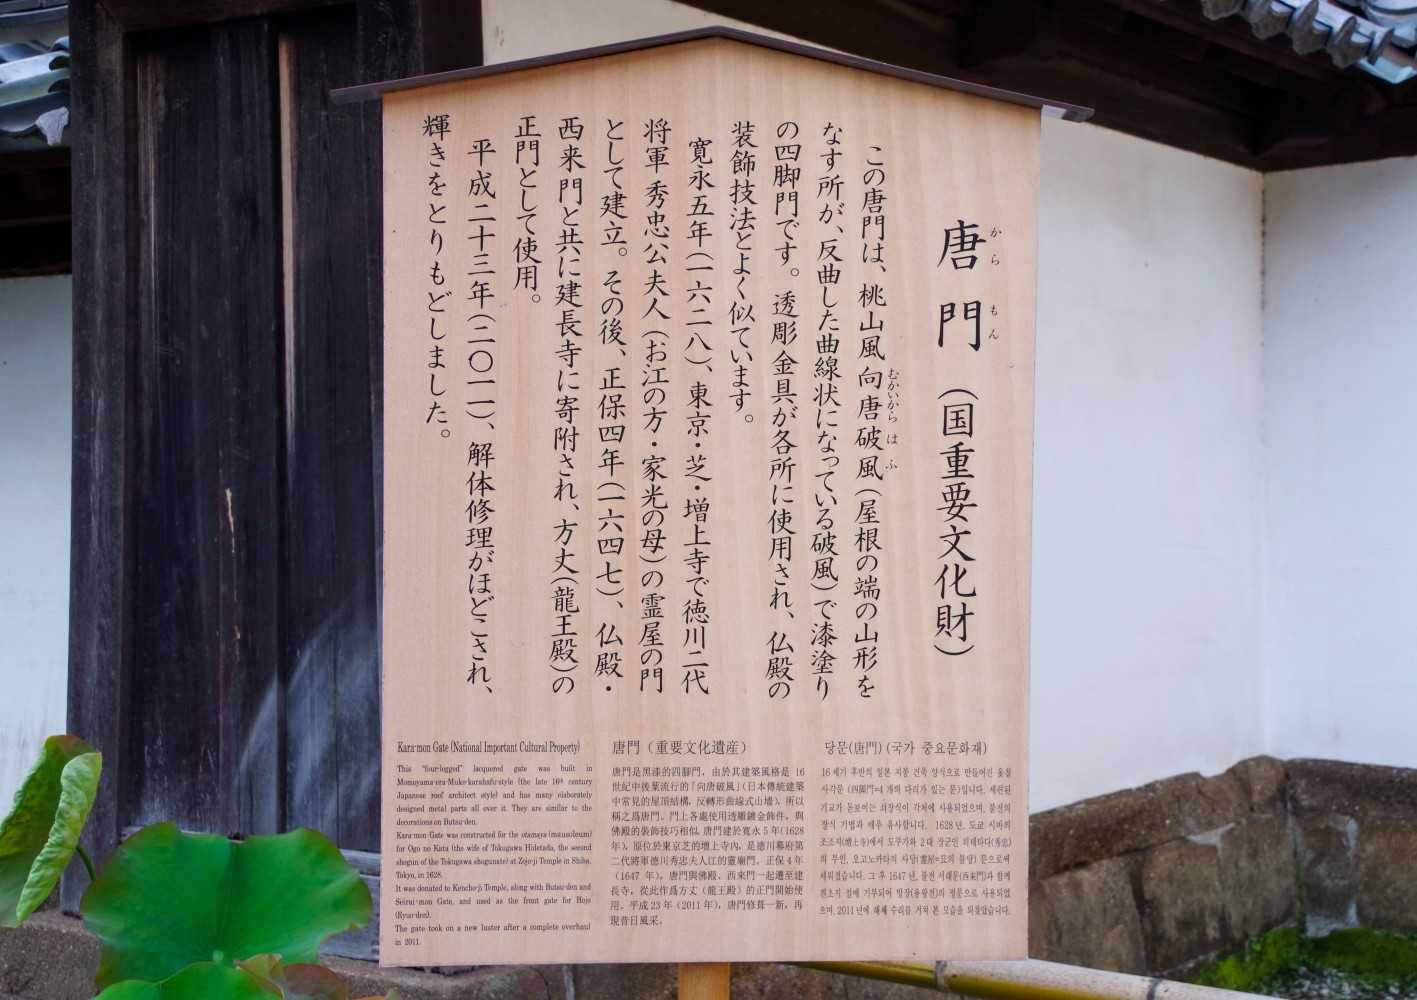 唐門（国重要文化財）
からもん
この唐門は、桃山風向唐破風（屋根の端の山形を
むかいからはふ
なす所が、反曲した曲線状になっている破風）で漆塗り
の四脚門です。透彫金具が各所に使用され、仏殿の
装飾技法とよく似ています。
寛永五年（一六二八）、東京・芝・増上寺で徳川二代
将軍秀忠公夫人（お江の方・家光の母）の霊屋の門
として建立。その後、正保四年（一六四七）、仏殿・
西来門と共に建長寺に寄附され、方丈（龍王殿）の
正門として使用。
平成二十三年（二〇一一）、解体修理がほどこされ、
輝きをとりもどしました。
Kara-mon Gate (National Important Cultural Property)
This "four-legged" lacquered gate was built in
Momoyama-era-Muko-karahafu-style (the late 16th century
Japanese roof architect style) and has many elaborately
designed metal parts all over it. They are similar to the
decorations on Butsu-den.
Kara-mon Gate was constructed for the otamaya (mausoleum)
for Ogo no Kata (the wife of Tokugawa Hidetada, the second
shogun of the Tokugawa shogunate) at Zojo-ji Temple in Shiba,
Tokyo, in 1628.
It was donated to Kencho-ji Temple, along with Butsu-den and
Seirai-mon Gate, and used as the front gate for Hojo
(Ryuo-den).
The gate took on a new luster after a complete overhaul
in 2011.
唐門（重要文化遺産）
唐門是黑漆的四腳門，由於其建築風格是 16
世紀中後葉流行的「向唐破風」（日本傳統建築
中常見的屋頂結構，反轉形曲線式山墻），所以
稱之爲唐門。門上各處使用透雕鍍金飾件，與
佛殿的裝飾技巧相似。唐門建於寬永 5 年（1628
年），原位於東京芝的增上寺內，是德川幕府第
二代將軍德川秀忠夫人江的靈廟門。正保 4 年
（1647 年），唐門與佛殿、西來門一起遷至建
長寺，從此作爲方丈（龍王殿）的正門開始使
用。平成 23 年（2011 年），唐門修葺一新，再
現昔日風采。
당문(唐門) (국가 중요문화재)
16 세기 후반의 일본 지붕 건축 양식으로 만들어진 옻칠
사각문 (四脚門=4 개의 다리가 있는 문)입니다. 세련된
기교가 돋보이는 쇠장식이 각처에 사용되었으며, 불전의
장식 기법과 매우 유사합니다. 1628 년, 도쿄 시바의
조조지(增上寺)에서 도쿠가와 2대 장군인 히데타다(秀忠)
의 부인, 오고노카타의 사당(靈屋=묘의 불당) 문으로써
세워졌습니다. 그 후 1647 년, 불전 서래문(西来門)과 함께
겐초지 절에 기부되어 방장(용왕전)의 정문으로 사용되었
으며, 2011 년에 해체 수리를 거쳐 본 모습을 되찾았습니다.